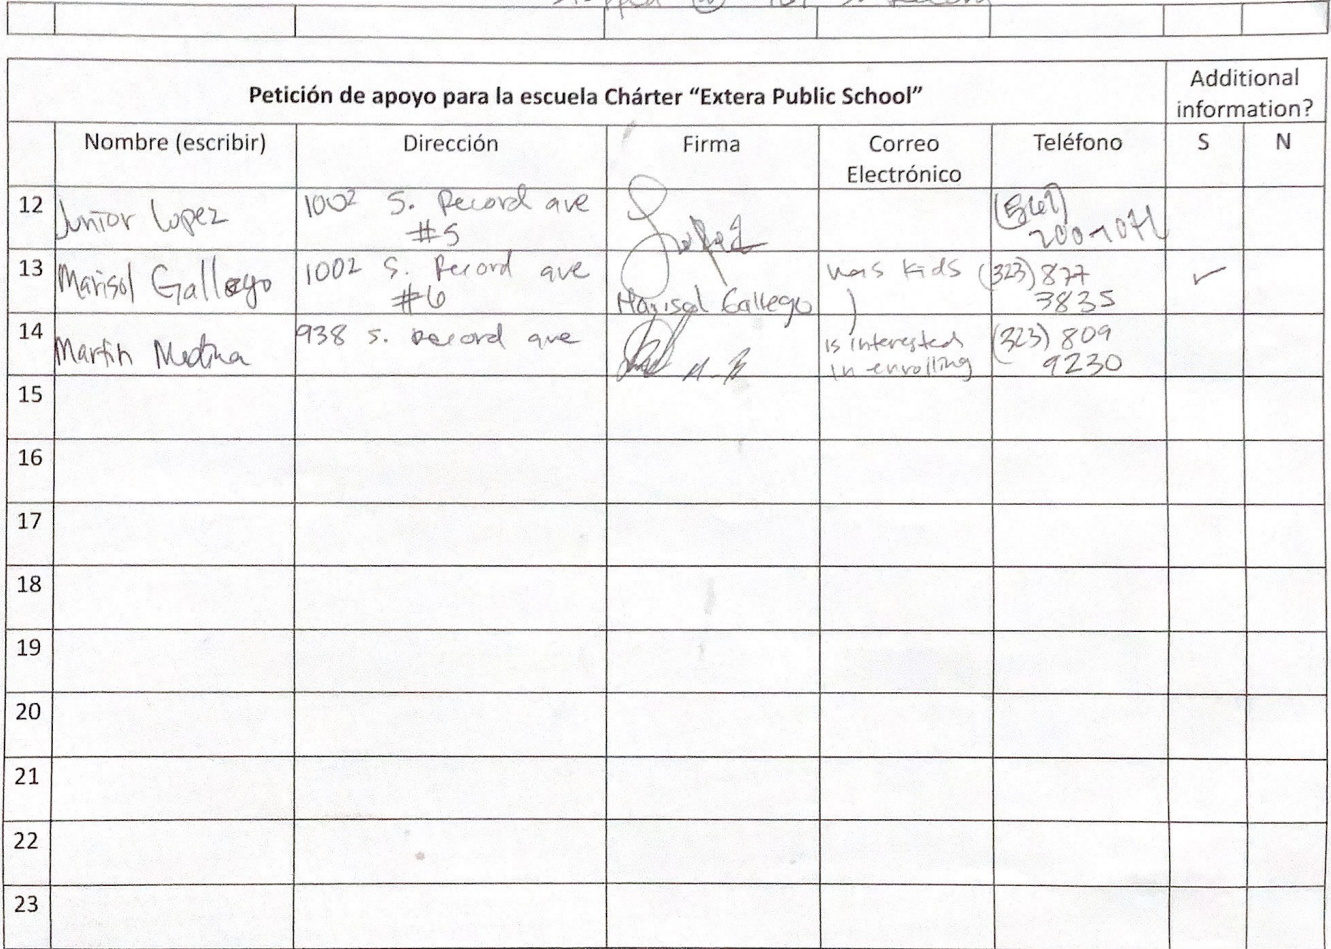 Petición de apoyo para la escuela Chárter “Extera Public School”
Additional information?
Nombre (escribir) Dirección Firma Correo Electrónico Teléfono S N
12 Junior Lopez 1002 S. Record ave #5
13 Marisol Gallego 1002 S. Record ave #6 Marisol Gallego has kids (323) 877 3835 ✓
14 Martin Medina 938 S. Record ave is interested in enrolling (323) 809 9230
15
16
17
18
19
20
21
22
23